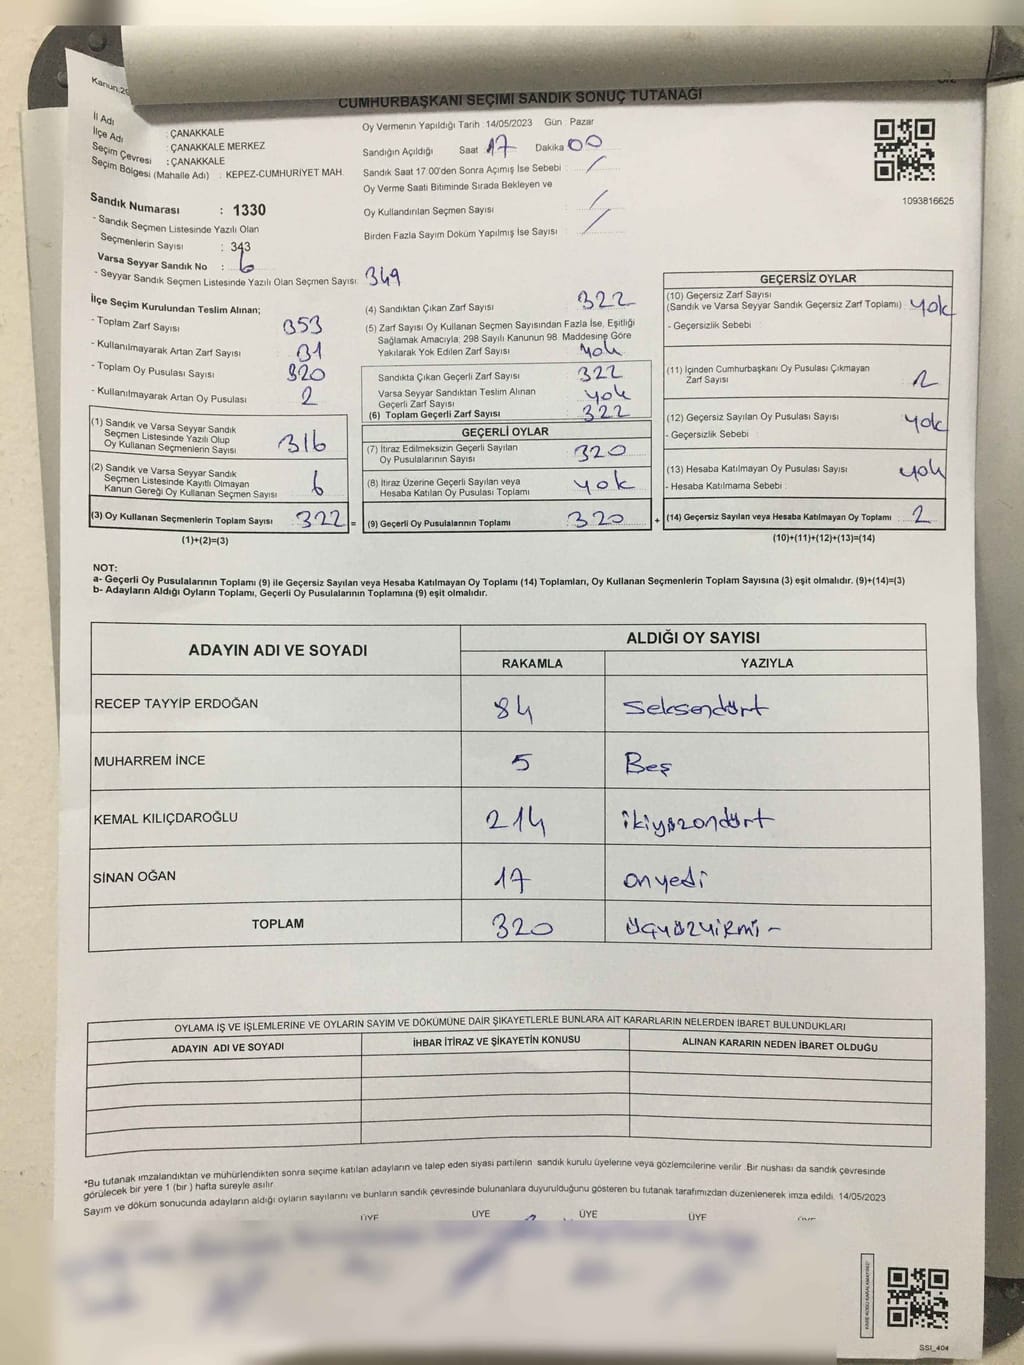 Kanun:29
CUMHURBAŞKANI SEÇİMİ SANDIK SONUÇ TUTANAĞI
İl Adı : ÇANAKKALE
İlçe Adı : ÇANAKKALE MERKEZ
Seçim Çevresi : ÇANAKKALE
Seçim Bölgesi (Mahalle Adı) : KEPEZ-CUMHURİYET MAH.
Sandık Numarası : 1330
- Sandık Seçmen Listesinde Yazılı Olan
Seçmenlerin Sayısı : 343
Varsa Seyyar Sandık No : 6
- Seyyar Sandık Seçmen Listesinde Yazılı Olan Seçmen Sayısı: 349
Oy Vermenin Yapıldığı Tarih :14/05/2023 Gün : Pazar
Sandığın Açıldığı Saat 17 Dakika 00
Sandık Saat 17:00'den Sonra Açımış İse Sebebi : /
Oy Verme Saati Bitiminde Sırada Bekleyen ve
Oy Kullandırılan Seçmen Sayısı : /
Birden Fazla Sayım Döküm Yapılmış İse Sayısı : /
1093816625
İlçe Seçim Kurulundan Teslim Alınan;
- Toplam Zarf Sayısı 353
- Kullanılmayarak Artan Zarf Sayısı 31
- Toplam Oy Pusulası Sayısı 320
- Kullanılmayarak Artan Oy Pusulası 2
(1) Sandık ve Varsa Seyyar Sandık
Seçmen Listesinde Yazılı Olup
Oy Kullanan Seçmenlerin Sayısı 316
(2) Sandık ve Varsa Seyyar Sandık
Seçmen Listesinde Kayıtlı Olmayan
Kanun Gereği Oy Kullanan Seçmen Sayısı 6
(3) Oy Kullanan Seçmenlerin Toplam Sayısı 322 =
(1)+(2)=(3)
(4) Sandıktan Çıkan Zarf Sayısı 322
(5) Zarf Sayısı Oy Kullanan Seçmen Sayısından Fazla İse, Eşitliği
Sağlamak Amacıyla; 298 Sayılı Kanunun 98. Maddesine Göre
Yakılarak Yok Edilen Zarf Sayısı yok
Sandıkta Çıkan Geçerli Zarf Sayısı 322
Varsa Seyyar Sandıktan Teslim Alınan
Geçerli Zarf Sayısı yok
(6) Toplam Geçerli Zarf Sayısı 322
GEÇERLİ OYLAR
(7) İtiraz Edilmeksizin Geçerli Sayılan
Oy Pusulalarının Sayısı 320
(8) İtiraz Üzerine Geçerli Sayılan veya
Hesaba Katılan Oy Pusulası Toplamı yok
(9) Geçerli Oy Pusulalarının Toplamı 320 +
GEÇERSİZ OYLAR
(10) Geçersiz Zarf Sayısı
(Sandık ve Varsa Seyyar Sandık Geçersiz Zarf Toplamı) : yok
- Geçersizlik Sebebi :
(11) İçinden Cumhurbaşkanı Oy Pusulası Çıkmayan
Zarf Sayısı 2
(12) Geçersiz Sayılan Oy Pusulası Sayısı yok
- Geçersizlik Sebebi :
(13) Hesaba Katılmayan Oy Pusulası Sayısı yok
- Hesaba Katılmama Sebebi :
(14) Geçersiz Sayılan veya Hesaba Katılmayan Oy Toplamı 2
(10)+(11)+(12)+(13)=(14)
NOT:
a- Geçerli Oy Pusulalarının Toplamı (9) ile Geçersiz Sayılan veya Hesaba Katılmayan Oy Toplamı (14) Toplamları, Oy Kullanan Seçmenlerin Toplam Sayısına (3) eşit olmalıdır. (9)+(14)=(3)
b- Adayların Aldığı Oyların Toplamı, Geçerli Oy Pusulalarının Toplamına (9) eşit olmalıdır.
ADAYIN ADI VE SOYADI ALDIĞI OY SAYISI
RAKAMLA YAZIYLA
RECEP TAYYİP ERDOĞAN 84 seksendört
MUHARREM İNCE 5 Beş
KEMAL KILIÇDAROĞLU 214 ikiyüzondört
SİNAN OĞAN 17 onyedi
TOPLAM 320 üçyüzyirmi -
OYLAMA İŞ VE İŞLEMLERİNE VE OYLARIN SAYIM VE DÖKÜMÜNE DAİR ŞİKAYETLERLE BUNLARA AİT KARARLARIN NELERDEN İBARET BULUNDUKLARI
ADAYIN ADI VE SOYADI İHBAR İTİRAZ VE ŞİKAYETİN KONUSU ALINAN KARARIN NEDEN İBARET OLDUĞU
*Bu tutanak imzalandıktan ve mühürlendikten sonra seçime katılan adayların ve talep eden siyasi partilerin sandık kurulu üyelerine veya gözlemcilerine verilir. Bir nüshası da sandık çevresinde
görülecek bir yere 1 (bir ) hafta süreyle asılır.
Sayım ve döküm sonucunda adayların aldığı oyların sayılarını ve bunların sandık çevresinde bulunanlara duyurulduğunu gösteren bu tutanak tarafımızdan düzenlenerek imza edildi. 14/05/2023
ÜYE ÜYE ÜYE ÜYE
SSİ_404